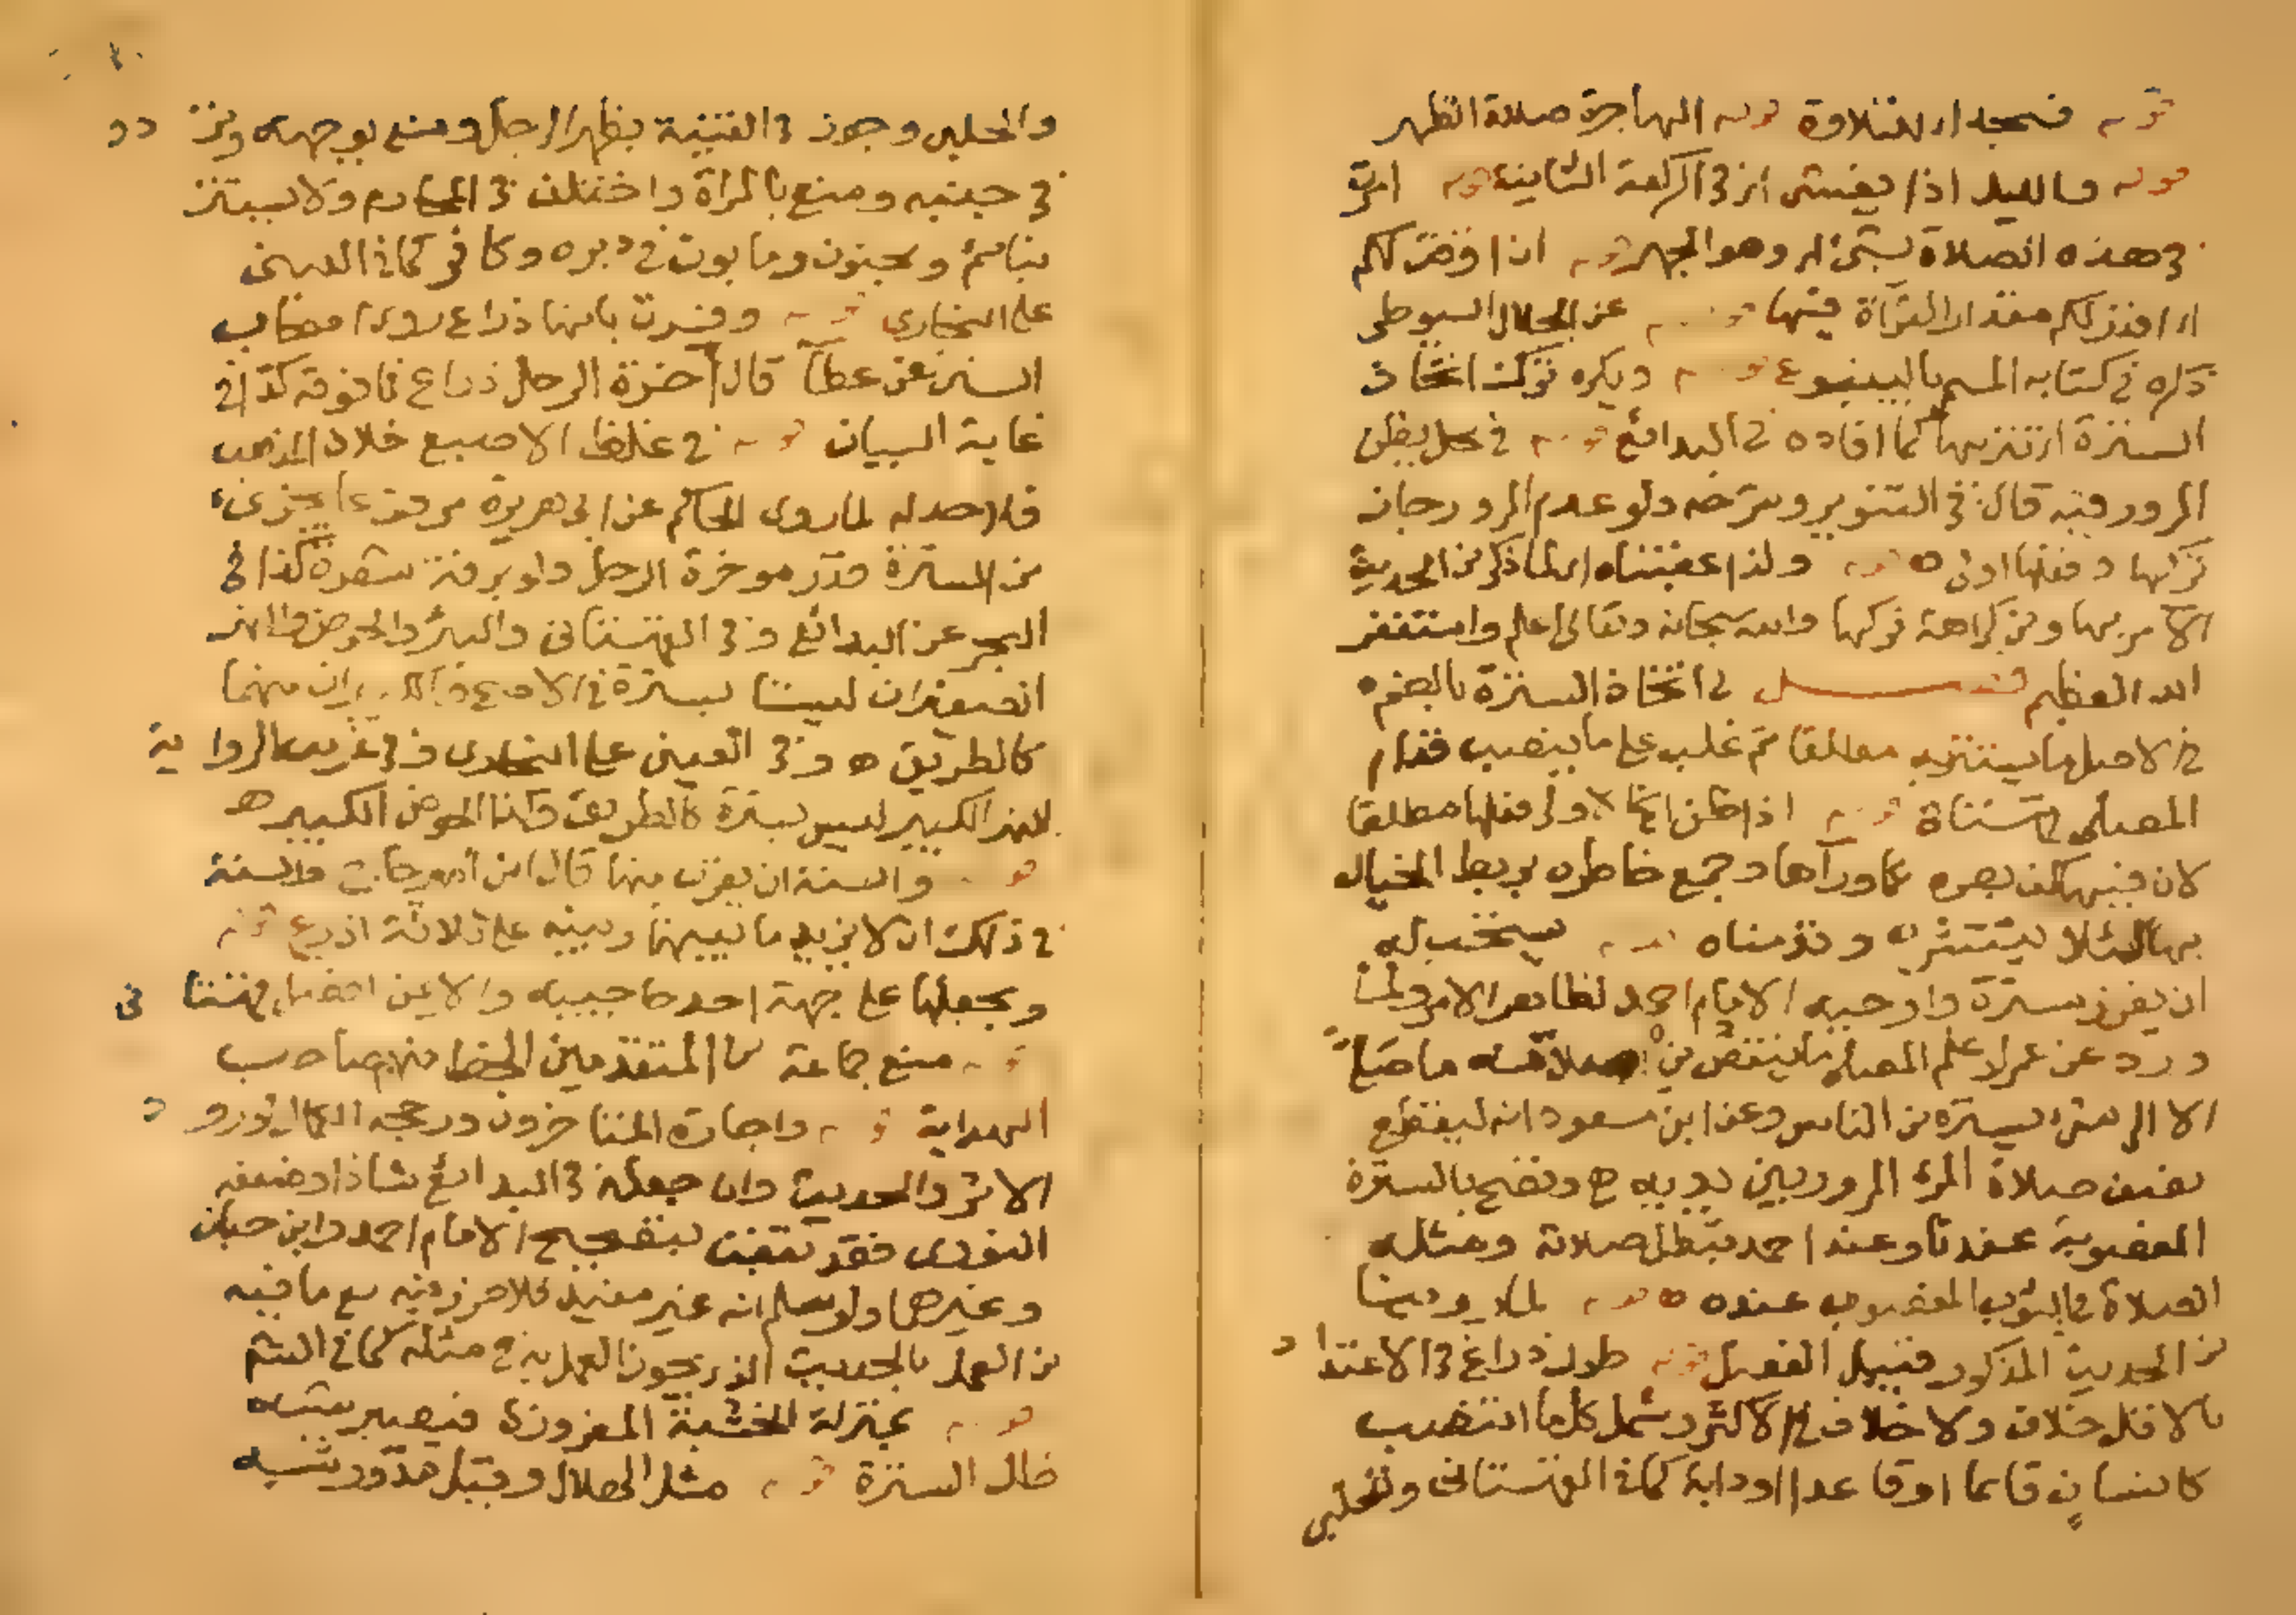 قوله فسجد أي للتلاوة قوله الهاجرة صلاة الظهر
قوله والليل اذا يغشى اي في الركعة الثانية قوله اقرأ
في هذه الصلاة بشئ اي وهو الجهر قوله اذا وفتر لكم
اي اقدر لكم مقدار القرأة فيها قوله عن الجلال السيوطى
ذكره في كتابه المسمى بالينبوع قوله ويكره ترك اتخاذ
السترة اي تنزيها كما افاده في البدائع قوله في محل يظن
المرور فيه قال في التنوير وشرحه ولو عدم المرور جاز
تركها وفعلها اولى ه قوله ولذا عقبناه اي لما ذكر من الحديث
الآمر بها ومن كراهة تركها والله سبحانه وتعالى اعلم واستغفر
الله العظيم فصل في اتخاذ السترة بالضم
في الاصل ما يستتر به مطلقا ثم غلب على ما ينصب قدام
المصلى قهستاني قوله اذا ظن انما الاولى فعلها مطلقا
لان فيها كف بصره عما ورآها وجمع خاطره بربط الخيال
بها لئلا ينتشر وقدمناه قوله يستحب له
ان يغرز سترة واوجبه الامام احمد لظاهر الامر ولما
ورد عن عمر لو علم المصلى ما ينقص من صلاته ما صلى
الا الى شئ يستره من الناس وعن ابن مسعود انه ليقطع
نصف صلاة المرء المرور بين يديه ه وتصح بالسترة
المغصوبة عندنا وعند احمد تبطل صلاته ومثله
الصلاة في الثوب المغصوب عنده ه قوله لما روينا
من الحديث المذكور قبيل الفصل قوله طول ذراع في الاعتداد
بالاقل خلاف ولا خلاف في الاكثر وشمل كل ما انتصب
كانسان قائما او قاعدا او دابة كما في القهستانى والحلبى
والحلبى وجوز في القنية بظهر الرجل ومنع بوجهه وتردد
في جنبه ومنع بالمرأة واختلف في المحارم ولا يستتر
بنائم ومجنون ومابون في دبره وكافر كما في العينى
على البخارى قوله وفسرت بانها ذراع روى اصحاب
السنن عن عطآ قال آخرة الرحل ذراع فما فوقه كذا في
غاية البيان قوله في غلظ الاصبع خلاف المذهب
فلا حد له لما روى الحاكم عن ابى هريرة مرفوعا يجزئ
من السترة قدر موخرة الرحل ولو بدقة شعرة كذا في
البحر عن البدائع وفي القهستانى والبئر والحوض والنهر
الصغيران ليستا بسترة في الاصح
كالطريق ه وفي العينى على البخارى وفي غريب الرواية
النهر الكبير ليس بسترة كالطريق وكذا الحوض الكبير ه
قوله والسنة ان يقرب منها قال ابن امير حاج والسنة
في ذلك ان لا يزيد ما بينها وبينه على ثلاثة اذرع قوله
ويجعلها على جهة احد حاجبيه والايمن افضل قهستانى
قوله منع جماعة من المتقدمين الخط منهم صاحب
الهداية قوله واجازه المتاخرون ورجحه الكمال لورود
الاثر والحديث وان جعله في البدائع شاذا وضعفه
النووى فقد تعقب بتصحيح الامام احمد وابن حبان
وغيرهما ولو سلم انه غير مفيد فلا ضرر فيه مع ما فيه
من العمل بالحديث الذى يجوز العمل به في مثله كما في الشم
قوله بمنزلة الخشبة المغروزة فيصير يشبه
ظل السترة قوله مثل الهلال وقيل مدور شبه